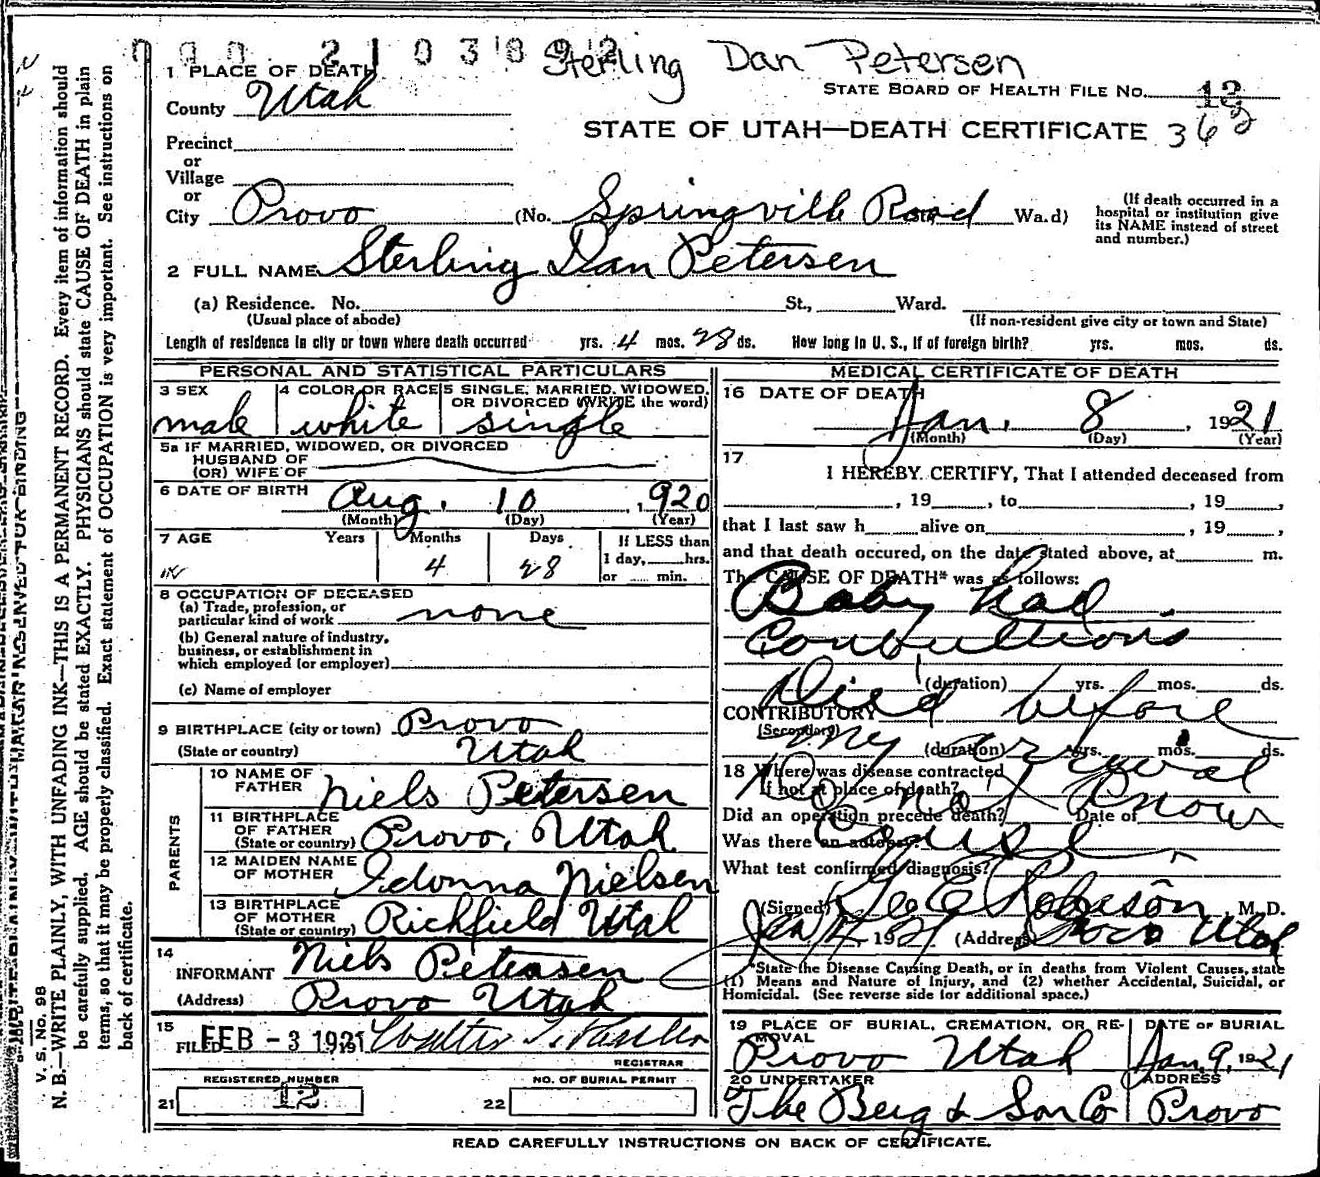 Sterling Dan Petersen
1 PLACE OF DEATH
STATE BOARD OF HEALTH FILE NO. 12
County Utah
STATE OF UTAH—DEATH CERTIFICATE 362
Precinct
or
Village
or
City Provo (No. Springville Road Ward)
(If death occurred in a hospital or institution give its NAME instead of street and number.)
2 FULL NAME Sterling Dan Petersen
(a) Residence. No. St., Ward.
(Usual place of abode) (If non-resident give city or town and State)
Length of residence in city or town where death occurred yrs. 4 mos. 28 ds. How long in U. S., if of foreign birth? yrs. mos. ds.
PERSONAL AND STATISTICAL PARTICULARS
3 SEX 4 COLOR OR RACE 5 SINGLE, MARRIED, WIDOWED, OR DIVORCED (WRITE the word)
male white single
5a IF MARRIED, WIDOWED, OR DIVORCED
HUSBAND OF
(OR) WIFE OF
6 DATE OF BIRTH Aug. 10, 1920
(Month) (Day) (Year)
7 AGE Years Months Days If LESS than
1 day, hrs.
4 28 or min.
8 OCCUPATION OF DECEASED
(a) Trade, profession, or
particular kind of work none
(b) General nature of industry,
business, or establishment in
which employed (or employer)
(c) Name of employer
9 BIRTHPLACE (city or town) Provo
(State or country) Utah
PARENTS
10 NAME OF FATHER Niels Petersen
11 BIRTHPLACE OF FATHER (State or country) Provo, Utah
12 MAIDEN NAME OF MOTHER Idonna Nielsen
13 BIRTHPLACE OF MOTHER (State or country) Richfield Utah
14
INFORMANT Niels Petersen
(Address) Provo Utah
15
FILED FEB - 3 1921 Walter
REGISTRAR
REGISTERED NUMBER NO. OF BURIAL PERMIT
21 12 22
MEDICAL CERTIFICATE OF DEATH
16 DATE OF DEATH
Jan. 8, 1921
(Month) (Day) (Year)
17
I HEREBY CERTIFY, That I attended deceased from
, 19 , to , 19 ,
that I last saw h alive on , 19 ,
and that death occured, on the date stated above, at m.
The CAUSE OF DEATH* was as follows:
Baby had
Convultions
(duration) yrs. mos. ds.
Died before
CONTRIBUTORY
(Secondary)
my arrival
(duration) yrs. mos. ds.
18 Where was disease contracted
if not at place of death?
Do not know
Did an operation precede death? Date of
Was there an autopsy?
cause
What test confirmed diagnosis?
(Signed) Geo E Robison, M. D.
Jan 1921 (Address) Provo Utah
*State the Disease Causing Death, or in deaths from Violent Causes, state
(1) Means and Nature of Injury, and (2) whether Accidental, Suicidal, or
Homicidal. (See reverse side for additional space.)
19 PLACE OF BURIAL, CREMATION, OR REMOVAL DATE OF BURIAL
Provo Utah Jan. 9, 1921
20 UNDERTAKER ADDRESS
The Berg & Son Co Provo
READ CAREFULLY INSTRUCTIONS ON BACK OF CERTIFICATE.
V. S. No. 98
N. B.—WRITE PLAINLY, WITH UNFADING INK—THIS IS A PERMANENT RECORD. Every item of information should
be carefully supplied. AGE should be stated EXACTLY. PHYSICIANS should state CAUSE OF DEATH in plain
terms, so that it may be properly classified. Exact statement of OCCUPATION is very important. See instructions on
back of certificate.